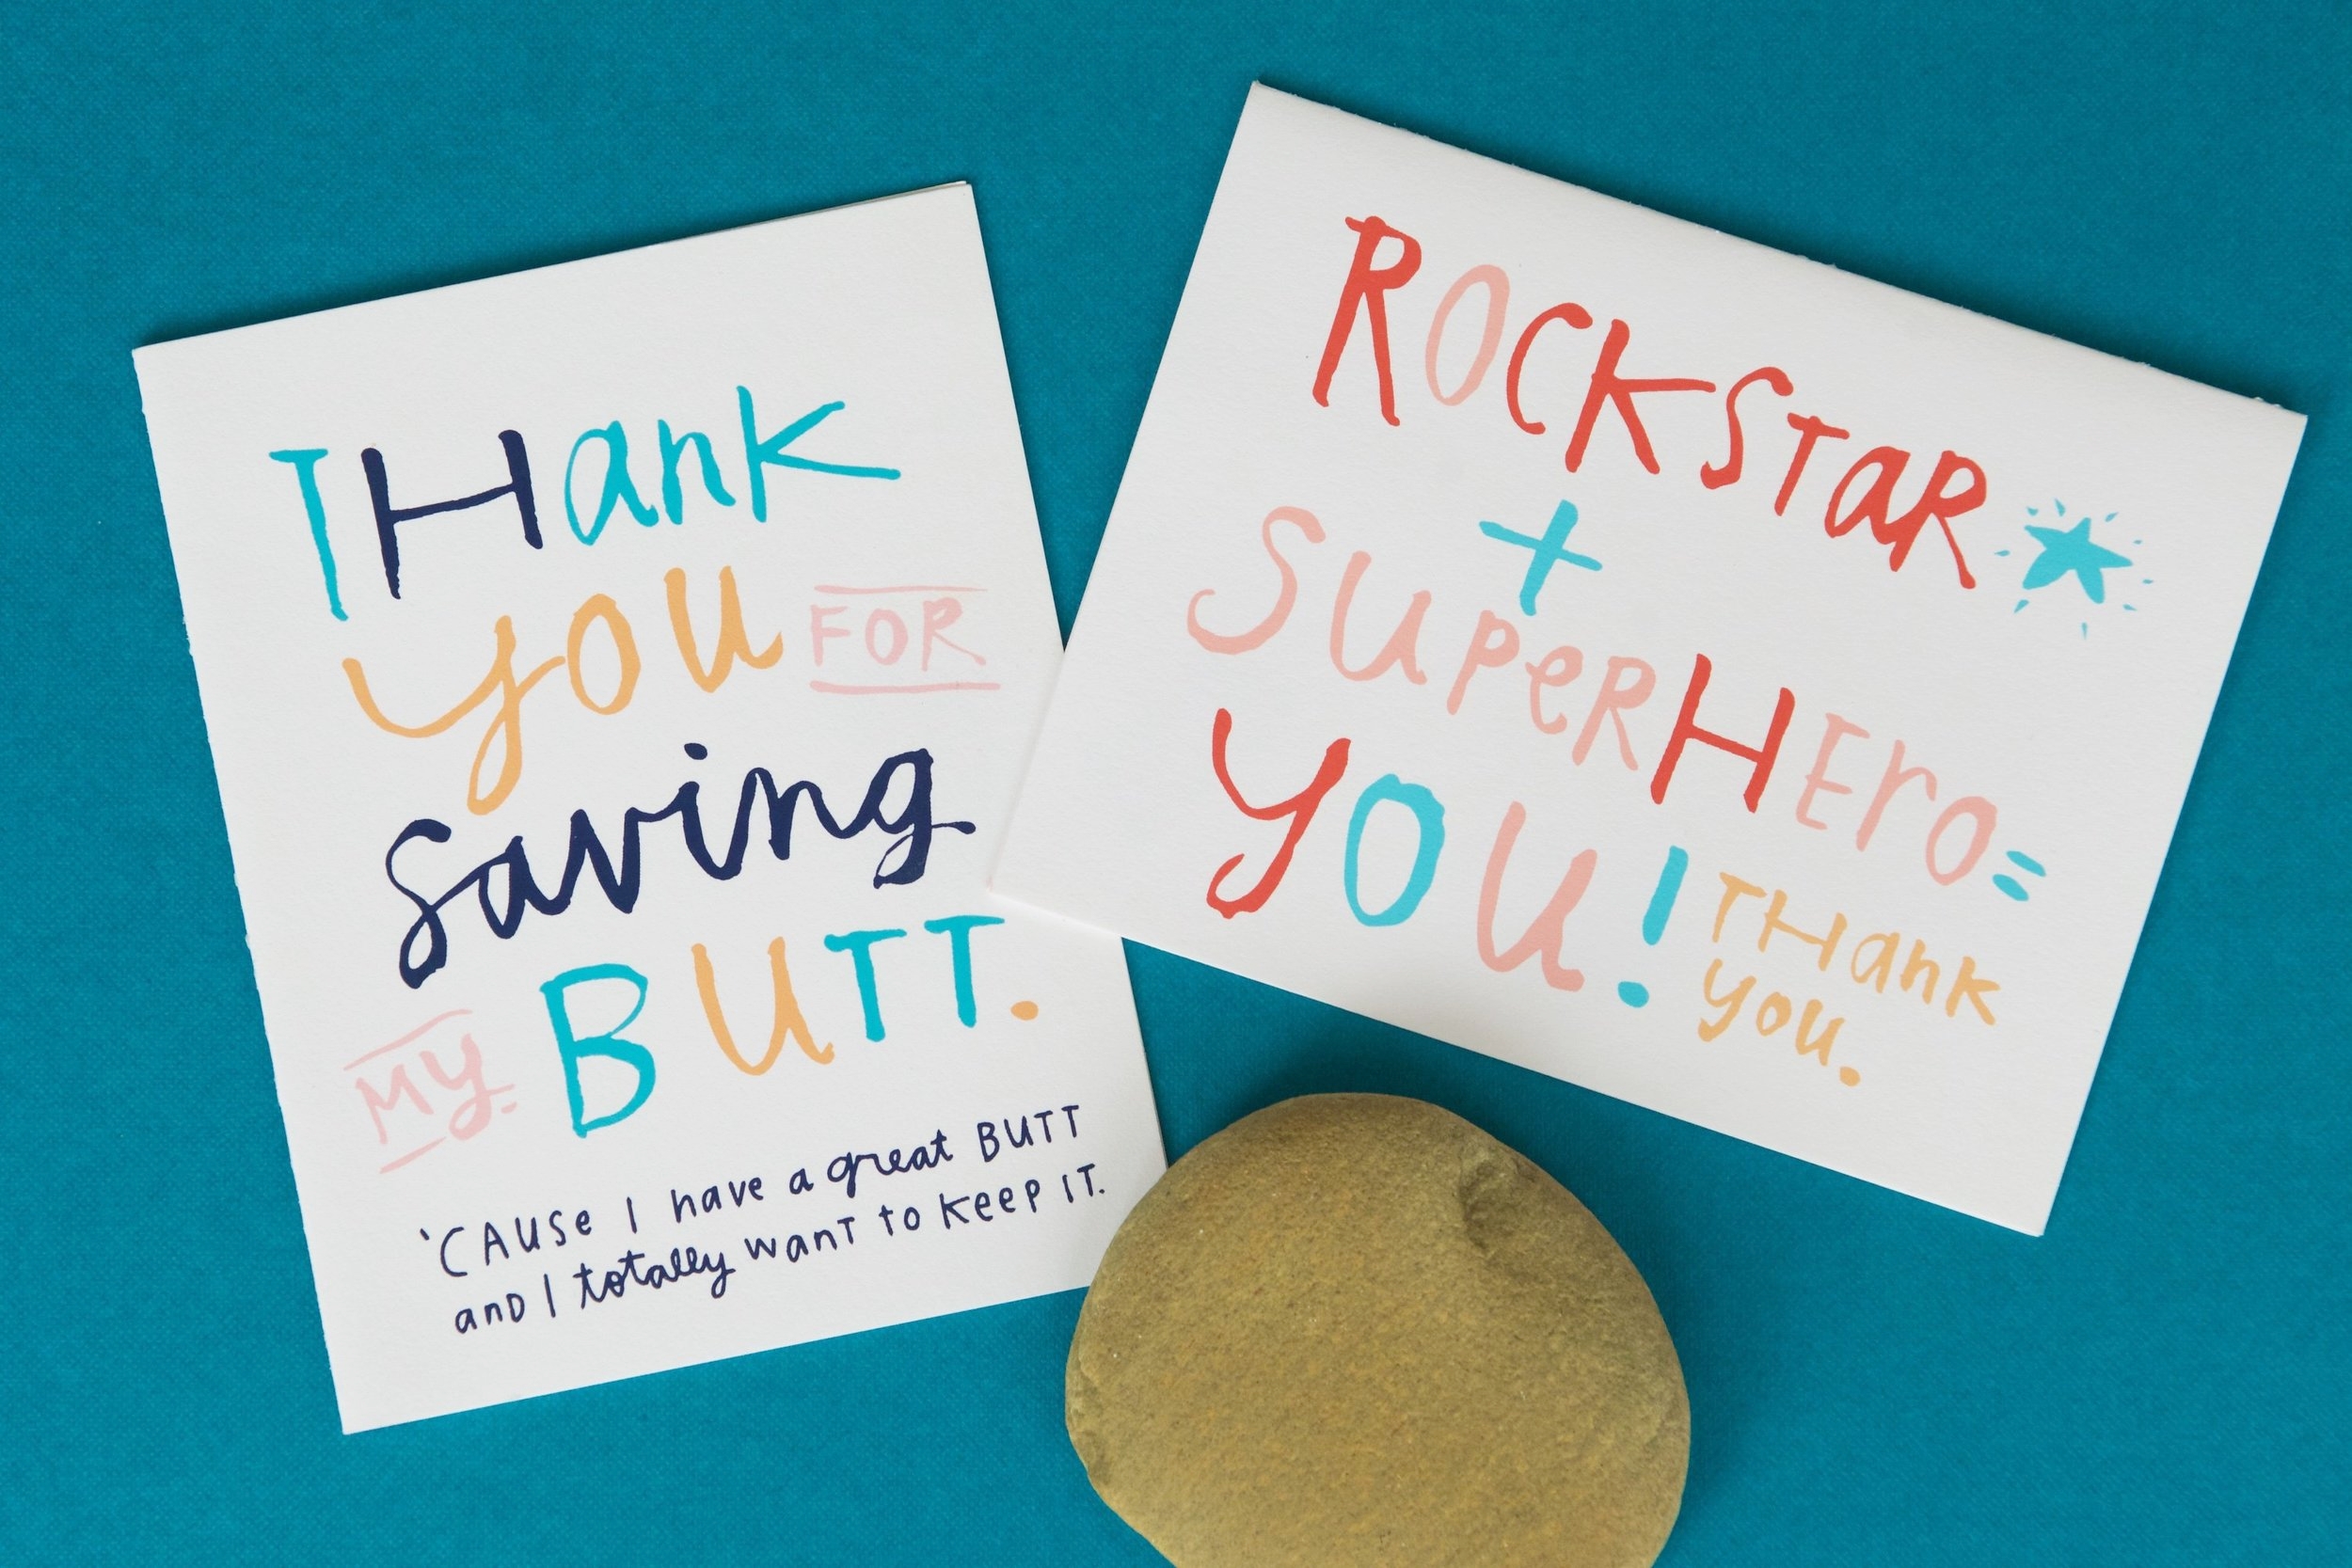 THank
you FOR
saving
MY BUTT.
'CAUSe I have a great BUTT
anD I totally wanT to keep IT.
ROCKSTaR
+
SUpeRHEro=
YOU! THank
you.